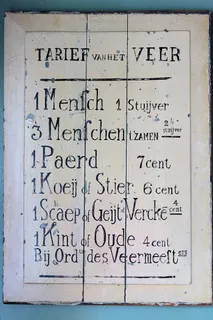 TARIEF VAN HET VEER
1 Mensch 1 Stuijver
3 Menschen tZAMEN 2½ stuijver
1 Paerd 7 cent
1 Koeij of Stier 6 cent
1 Scaep of Geijt Vercke 4 cent
1 Kint of Oude 4 cent
Bij Ord des Veermeest